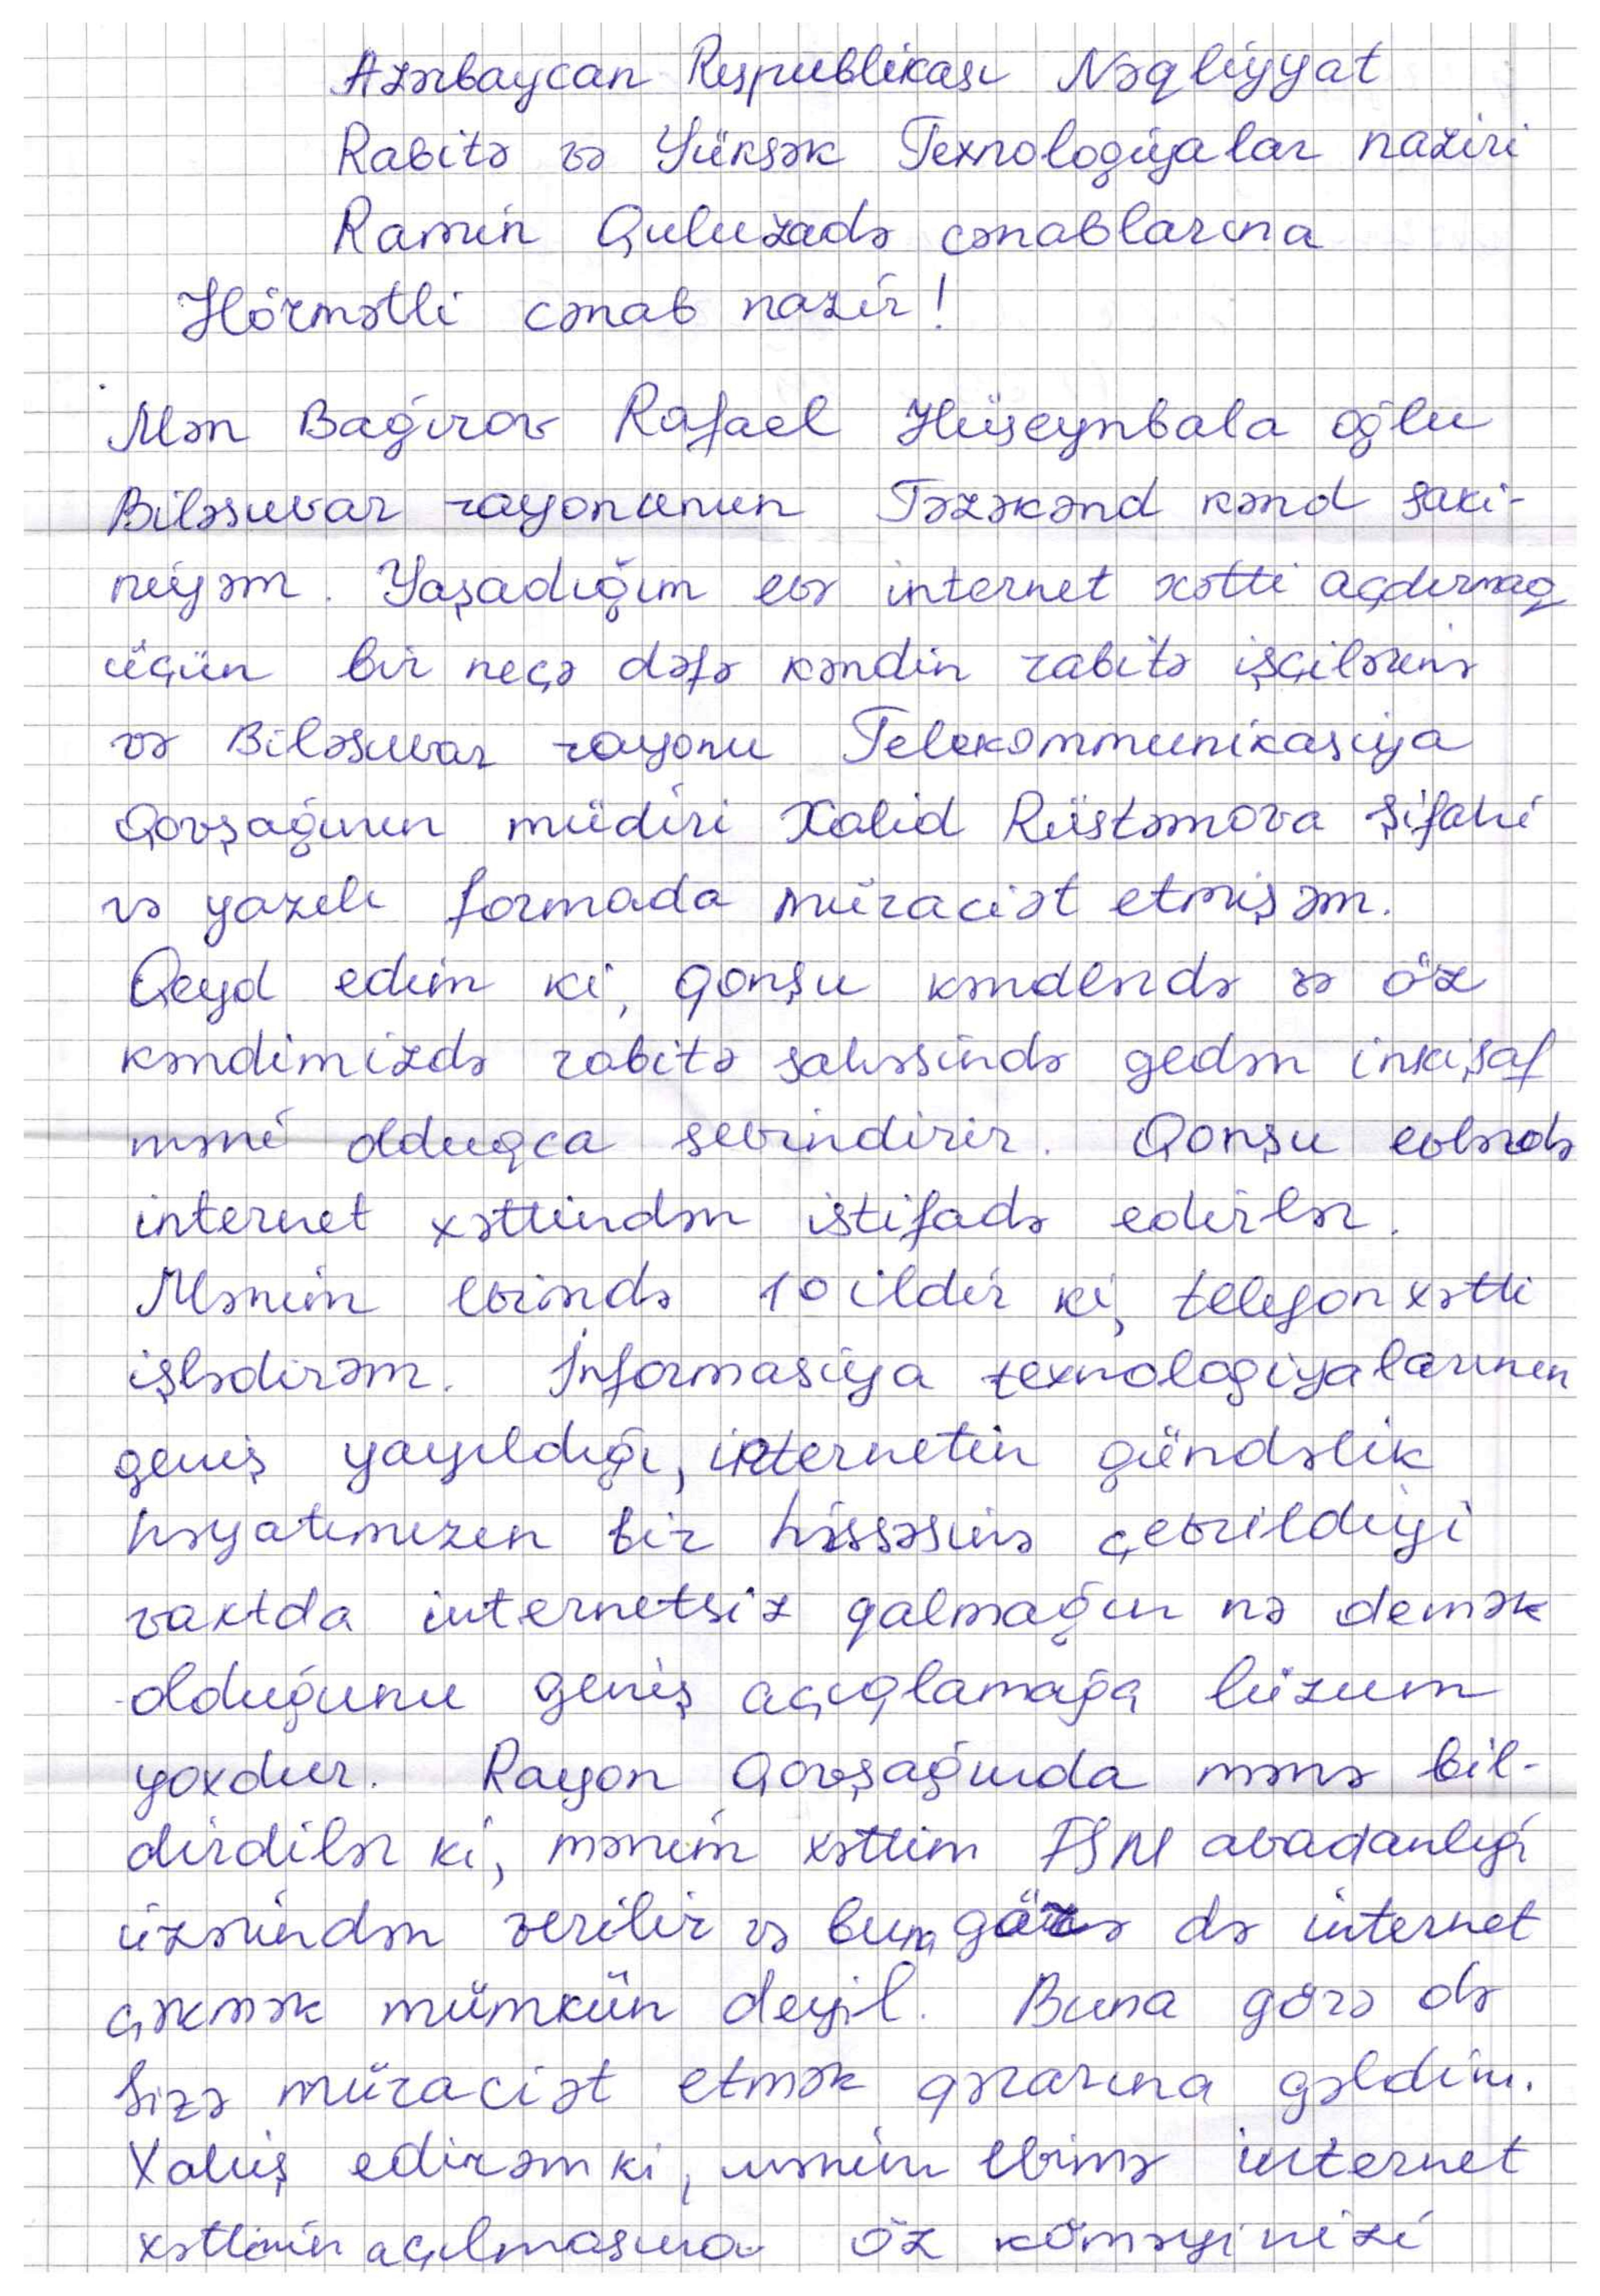 Azərbaycan Respublikası Nəqliyyat
Rabitə və Yüksək Texnologiyalar naziri
Ramin Quluzadə cənablarına
Hörmətli cənab nazir!
Mən Bağırov Rafael Hüseynbala oğlu
Biləsuvar rayonunun Təzəkənd kənd saki-
niyəm. Yaşadığım evə internet xətti açdırmaq
üçün bir neçə dəfə kəndin rabitə işçilərinə
və Biləsuvar rayonu Telekommunikasiya
Qovşağının müdiri Xalid Rüstəmova şifahi
və yazılı formada müraciət etmişəm.
Qeyd edim ki, qonşu kəndlərdə və öz
kəndimizdə rabitə sahəsində gedən inkişaf
məni olduqca sevindirir. Qonşu evlərdə
internet xəttindən istifadə edirlər.
Mənim evimdə 10 ildir ki, telefon xətti
işlədirəm. İnformasiya texnologiyalarının
geniş yayıldığı, internetin gündəlik
həyatımızın bir hissəsinə çevrildiyi
vaxtda internetsiz qalmağın nə demək
olduğunu geniş açıqlamağa lüzum
yoxdur. Rayon Qovşağında mənə bil-
dirdilər ki, mənim xəttim FSM avadanlığı
üzərindən verilir və buna görə də internet
çəkmək mümkün deyil. Buna görə də
Sizə müraciət etmək qərarına gəldim.
Xahiş edirəm ki, mənim evimə internet
xəttinin açılmasına öz köməyinizi